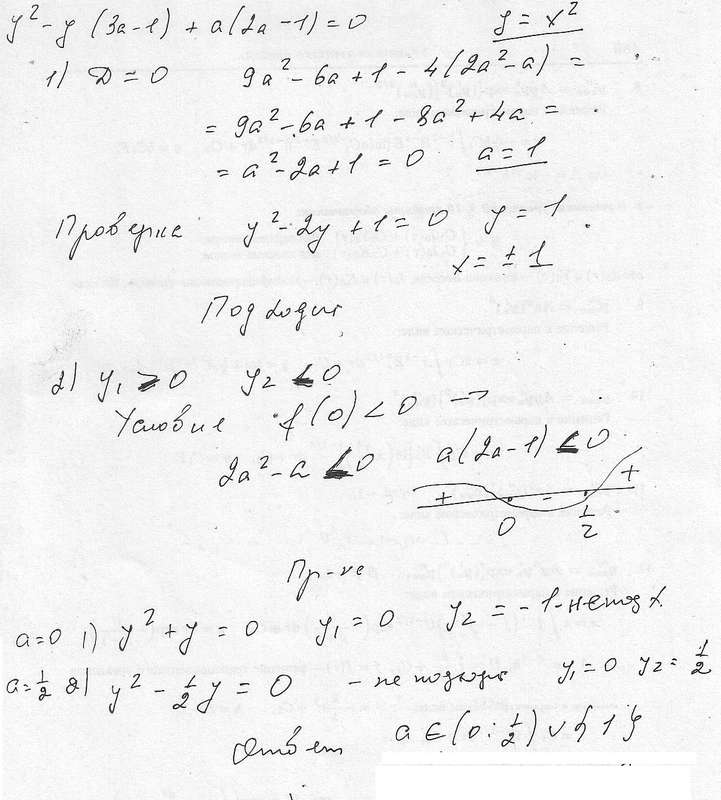 y² - y (3a-1) + a(2a-1) = 0 y = x²
1) D = 0 9a² - 6a + 1 - 4(2a² - a) =
= 9a² - 6a + 1 - 8a² + 4a =
= a² - 2a + 1 = 0 a = 1
Проверка y² - 2y + 1 = 0 y = 1
x = ± 1
Подходит
2) y₁ > 0 y₂ < 0
Условие f(0) < 0 →
2a² - a < 0 a(2a-1) < 0
+ - +
0 1/2
Пр-ка
a=0 1) y² + y = 0 y₁ = 0 y₂ = -1 - не подх.
a=1/2 2) y² - 1/2 y = 0 - не подходит y₁ = 0 y₂ = 1/2
Ответ a ∈ (0; 1/2) ∪ {1}